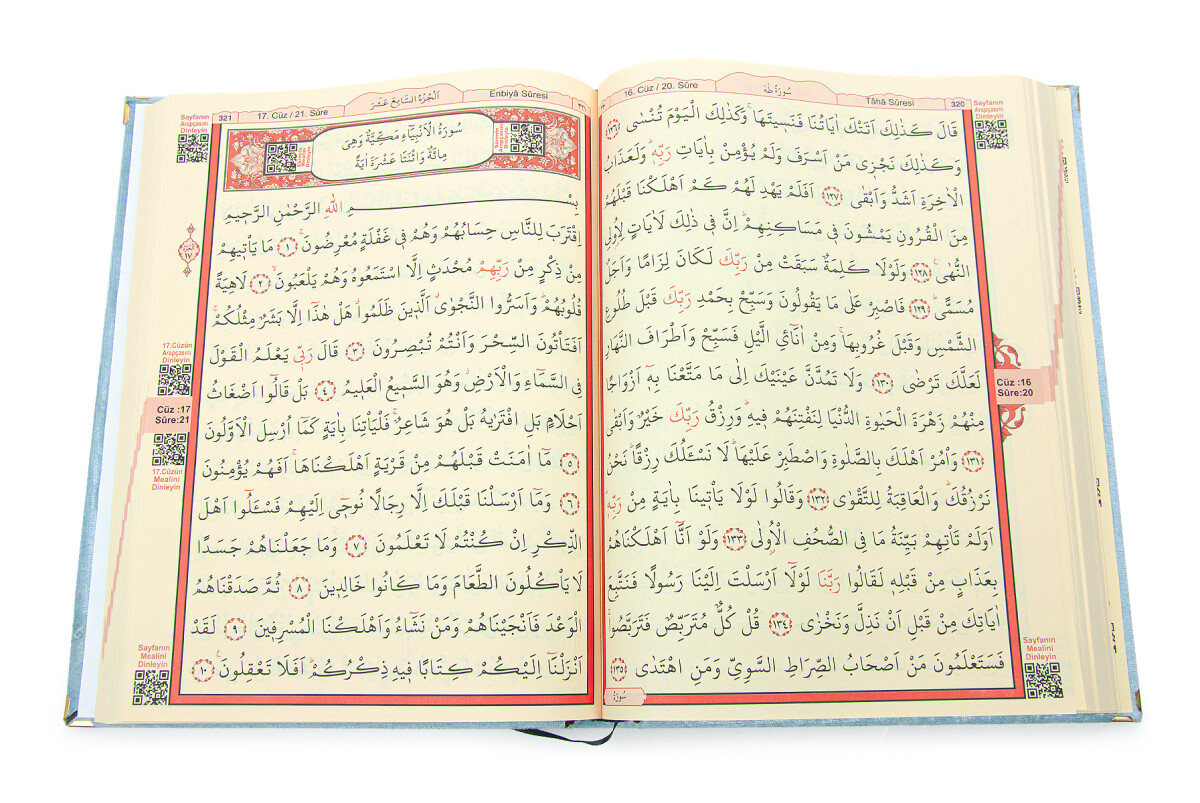 16. Cüz / 20. Sûre
سُورَةُ طٰهٰ
Tâhâ Sûresi
320
Sayfanın
Arapçasını
Dinleyin
قَالَ كَذٰلِكَ اَتَتْكَ اٰيَاتُنَا فَنَس۪يتَهَاۚ وَكَذٰلِكَ الْيَوْمَ تُنْسٰى ﴿١٢٦﴾
وَكَذٰلِكَ نَجْز۪ي مَنْ اَسْرَفَ وَلَمْ يُؤْمِنْ بِاٰيَاتِ رَبِّه۪ۜ وَلَعَذَابُ
الْاٰخِرَةِ اَشَدُّ وَاَبْقٰى ﴿١٢٧﴾ اَفَلَمْ يَهْدِ لَهُمْ كَمْ اَهْلَكْنَا قَبْلَهُمْ
مِنَ الْقُرُونِ يَمْشُونَ ف۪ي مَسَاكِنِهِمْۜ اِنَّ ف۪ي ذٰلِكَ لَاٰيَاتٍ لِاُو۬لِي
النُّهٰى۟ ﴿١٢٨﴾ وَلَوْلَا كَلِمَةٌ سَبَقَتْ مِنْ رَبِّكَ لَكَانَ لِزَامًا وَاَجَلٌ
مُسَمًّىۜ ﴿١٢٩﴾ فَاصْبِرْ عَلٰى مَا يَقُولُونَ وَسَبِّحْ بِحَمْدِ رَبِّكَ قَبْلَ طُلُوعِ
الشَّمْسِ وَقَبْلَ غُرُوبِهَاۚ وَمِنْ اٰنَٓائِ الَّيْلِ فَسَبِّحْ وَاَطْرَافَ النَّهَارِ
لَعَلَّكَ تَرْضٰى ﴿١٣٠﴾ وَلَا تَمُدَّنَّ عَيْنَيْكَ اِلٰى مَا مَتَّعْنَا بِه۪ٓ اَزْوَاجًا
مِنْهُمْ زَهْرَةَ الْحَيٰوةِ الدُّنْيَا لِنَفْتِنَهُمْ ف۪يهِۜ وَرِزْقُ رَبِّكَ خَيْرٌ وَاَبْقٰى
﴿١٣١﴾ وَأْمُرْ اَهْلَكَ بِالصَّلٰوةِ وَاصْطَبِرْ عَلَيْهَاۜ لَا نَسْـَٔلُكَ رِزْقًاۜ نَحْنُ
نَرْزُقُكَۜ وَالْعَاقِبَةُ لِلتَّقْوٰى ﴿١٣٢﴾ وَقَالُوا لَوْلَا يَأْت۪ينَا بِاٰيَةٍ مِنْ رَبِّه۪ۜ
اَوَلَمْ تَأْتِهِمْ بَيِّنَةُ مَا فِي الصُّحُفِ الْاُو۫لٰى ﴿١٣٣﴾ وَلَوْ اَنَّٓا اَهْلَكْنَاهُمْ
بِعَذَابٍ مِنْ قَبْلِه۪ لَقَالُوا رَبَّنَا لَوْلَٓا اَرْسَلْتَ اِلَيْنَا رَسُولًا فَنَتَّبِعَ
اٰيَاتِكَ مِنْ قَبْلِ اَنْ نَذِلَّ وَنَخْزٰى ﴿١٣٤﴾ قُلْ كُلٌّ مُتَرَبِّصٌ فَتَرَبَّصُواۚ
فَسَتَعْلَمُونَ مَنْ اَصْحَابُ الصِّرَاطِ السَّوِيِّ وَمَنِ اهْتَدٰى ﴿١٣٥﴾
سُورَةُ
Cüz :16
Sûre:20
Sayfanın
Mealini
Dinleyin
321
17. Cüz / 21. Sûre
اَلْجُزْءُ السَّابِعَ عَشَرَ
Enbiyâ Sûresi
Sayfanın
Arapçasını
Dinleyin
سُورَةُ الْاَنْبِيَٓاءِ مَكِّيَّةٌ وَهِيَ
مِائَةٌ وَاثْنَتَا عَشْرَةَ اٰيَةً
بِسْــــــمِ اللّٰهِ الرَّحْمٰنِ الرَّح۪يمِ
اِقْتَرَبَ لِلنَّاسِ حِسَابُهُمْ وَهُمْ ف۪ي غَفْلَةٍ مُعْرِضُونَۚ ﴿١﴾ مَا يَأْت۪يهِمْ
مِنْ ذِكْرٍ مِنْ رَبِّهِمْ مُحْدَثٍ اِلَّا اسْتَمَعُوهُ وَهُمْ يَلْعَبُونَۙ ﴿٢﴾ لَاهِيَةً
قُلُوبُهُمْۜ وَاَسَرُّوا النَّجْوٰىۗ اَلَّذ۪ينَ ظَلَمُواۗ هَلْ هٰذَٓا اِلَّا بَشَرٌ مِثْلُكُمْۚ
اَفَتَأْتُونَ السِّحْرَ وَاَنْتُمْ تُبْصِرُونَ ﴿٣﴾ قَالَ رَبّ۪ي يَعْلَمُ الْقَوْلَ
فِي السَّمَٓاءِ وَالْاَرْضِۘ وَهُوَ السَّم۪يعُ الْعَل۪يمُ ﴿٤﴾ بَلْ قَالُٓوا اَضْغَاثُ
اَحْلَامٍ بَلِ افْتَرٰيهُ بَلْ هُوَ شَاعِرٌۚ فَلْيَأْتِنَا بِاٰيَةٍ كَمَٓا اُرْسِلَ الْاَوَّلُونَ
﴿٥﴾ مَٓا اٰمَنَتْ قَبْلَهُمْ مِنْ قَرْيَةٍ اَهْلَكْنَاهَاۚ اَفَهُمْ يُؤْمِنُونَ
﴿٦﴾ وَمَٓا اَرْسَلْنَا قَبْلَكَ اِلَّا رِجَالًا نُوح۪ٓي اِلَيْهِمْ فَسْـَٔلُٓوا اَهْلَ
الذِّكْرِ اِنْ كُنْتُمْ لَا تَعْلَمُونَ ﴿٧﴾ وَمَا جَعَلْنَاهُمْ جَسَدًا
لَا يَأْكُلُونَ الطَّعَامَ وَمَا كَانُوا خَالِد۪ينَ ﴿٨﴾ ثُمَّ صَدَقْنَاهُمُ
الْوَعْدَ فَاَنْجَيْنَاهُمْ وَمَنْ نَشَٓاءُ وَاَهْلَكْنَا الْمُسْرِف۪ينَ ﴿٩﴾ لَقَدْ
اَنْزَلْنَٓا اِلَيْكُمْ كِتَابًا ف۪يهِ ذِكْرُكُمْۜ اَفَلَا تَعْقِلُونَ۟ ﴿١٠﴾
17.Cüzün
Arapçasını
Dinleyin
Cüz :17
Sûre:21
17.Cüzün
Mealini
Dinleyin
Sayfanın
Mealini
Dinleyin